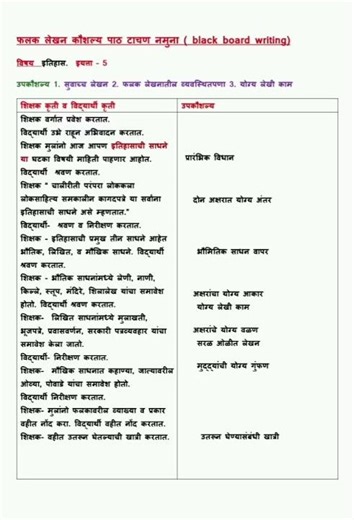 फलक लेखन कौशल्य पाठ टाचण नमुना ( black board writing)
विषय इतिहास. इयत्ता - 5
उपकौशल्य 1. सुवाच्य लेखन 2. फलक लेखनातील व्यवस्थितपणा 3. योग्य लेखी काम
शिक्षक कृती व विद्यार्थी कृती
उपकौशल्य
शिक्षक वर्गात प्रवेश करतात.
विद्यार्थी उभे राहून अभिवादन करतात.
शिक्षक मुलांनो आज आपण इतिहासाची साधने
या घटका विषयी माहिती पाहणार आहोत.
प्रारंभिक विधान
विद्यार्थी श्रवण करतात.
शिक्षक " चालीरीती परंपरा लोककला
लोकसाहित्य समकालीन कागदपत्रे या सर्वांना
दोन अक्षरात योग्य अंतर
इतिहासाची साधने असे म्हणतात."
विद्यार्थी- श्रवण व निरीक्षण करतात.
शिक्षक - इतिहासाची प्रमुख तीन साधने आहेत
भौतिक, लिखित, व मौखिक साधने. विद्यार्थी
भौमितिक साधन वापर
श्रवण करतात.
शिक्षक - भौतिक साधनांमध्ये लेणी, नाणी,
किल्ले, स्तूप, मंदिरे, शिलालेख यांचा समावेश
अक्षरांचा योग्य आकार
होतो. विद्यार्थी श्रवण करतात.
योग्य लेखी काम
शिक्षक- लिखित साधनांमध्ये मुलाखती,
भूजपत्रे, प्रवासवर्णन, सरकारी पत्रव्यवहार यांचा
अक्षरांचे योग्य वळण
समावेश केला जातो.
सरळ ओळीत लेखन
विद्यार्थी- निरीक्षण करतात.
शिक्षक- मौखिक साधनात कहाण्या, जात्यावरील
मुद्द्यांची योग्य गुंफण
ओव्या, पोवाडे यांचा समावेश होतो.
विद्यार्थी निरीक्षण करतात.
शिक्षक- मुलांनो फलकावरील व्याख्या व प्रकार
वहीत नोंद करा. विद्यार्थी वहीत नोंद करतात.
शिक्षक- वहीत उतरून घेतल्याची खात्री करतात.
उतरून घेण्यासंबंधी खात्री